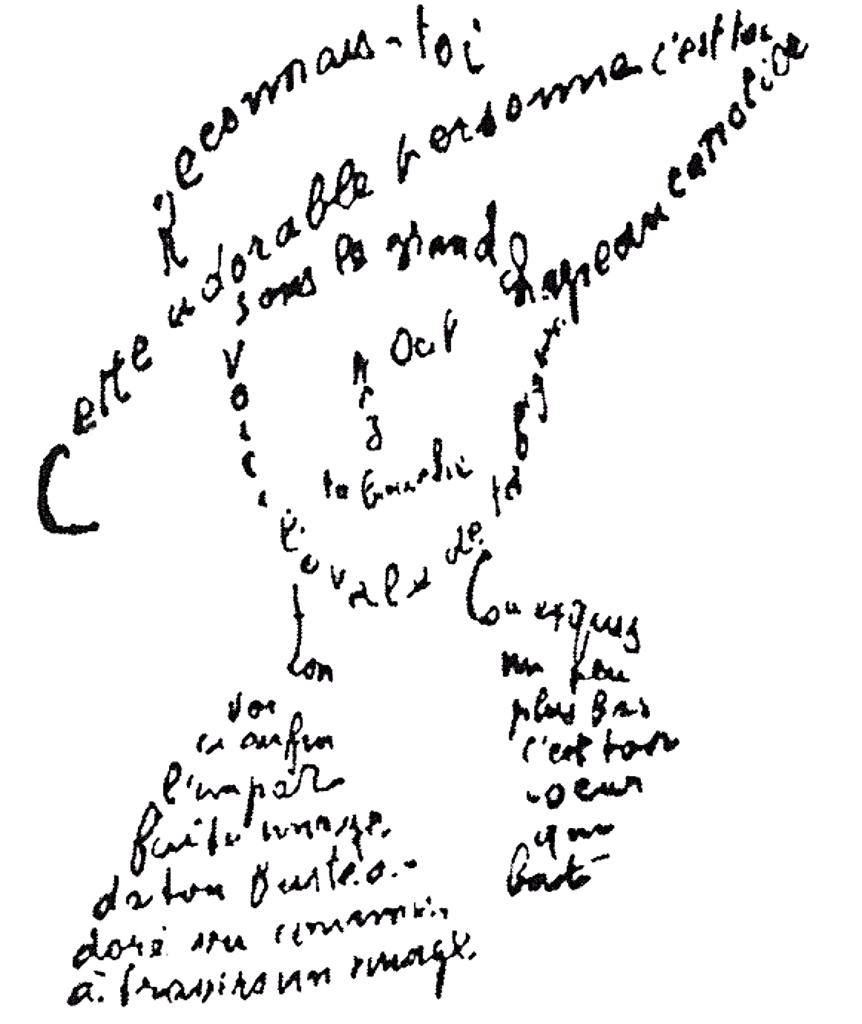 Reconnais-toi
Cette adorable personne c'est toi
sous le grand chapeau canotier
Oeil
Nez
ta bouche
Voici l'ovale de ta figure
ton
cou exquis
Voi
ci enfin
l'impar
faite image
de ton buste a
doré vu comme
à travers un nuage
un peu
plus bas
c'est ton
coeur
qui
bat